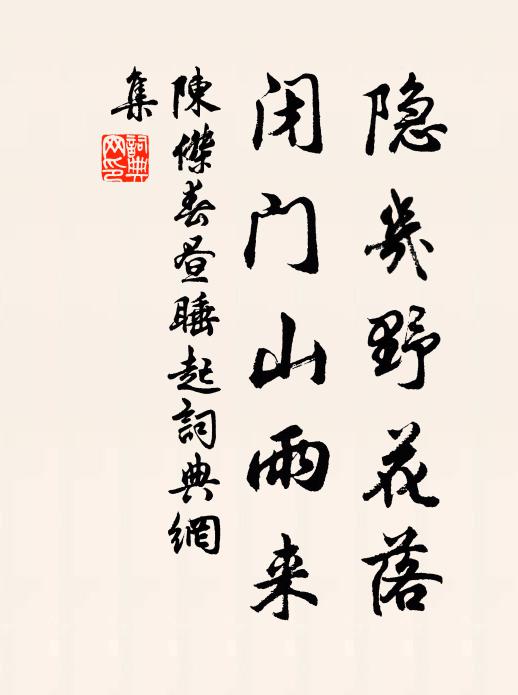 隐幾野花落
闭门山雨来
陳傑春昼睡起詞典網
集
詞典
网印